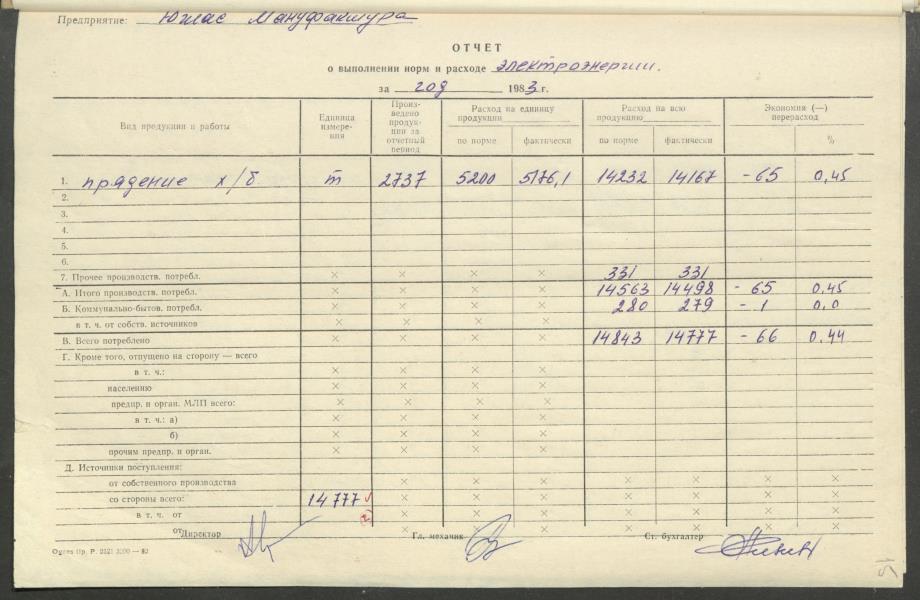 Предприятие: Юглас Мануфактура
ОТЧЕТ
о выполнении норм и расходе электроэнергии.
за год 1983 г.
Вид продукции и работы
Единица измере-ния
Произ-ведено продук-ции за отчетный период
Расход на единицу продукции
по норме фактически
Расход на всю продукцию
по норме фактически
Экономия (—) перерасход
%
1. прядение х/б т 2737 5200 5176,1 14232 14167 -65 0,45
2.
3.
4.
5.
6.
7. Прочее производств. потребл. × × × × 331 331
А. Итого производств. потребл. × × × × 14563 14498 - 65 0.45
Б. Коммунально-бытов. потребл. × × × × 280 279 - 1 0.0
в т. ч. от собств. источников × × × ×
В. Всего потреблено × × × × 14843 14777 - 66 0.44
Г. Кроме того, отпущено на сторону — всего
в т. ч.: × × × ×
населению × × × ×
предпр. и орган. МЛП всего: × × × ×
в т. ч.: а) × × × ×
б) × × × ×
прочим предпр. и орган. × × × ×
Д. Источники поступления:
от собственного производства × × × × × × ×
со стороны всего: 14777 × × × × × × ×
в т. ч. от × × × × × × ×
от × × × × × × ×
Директор Гл. механик Ст. бухгалтер
Ogres tip. P. 2121 3000 — 82